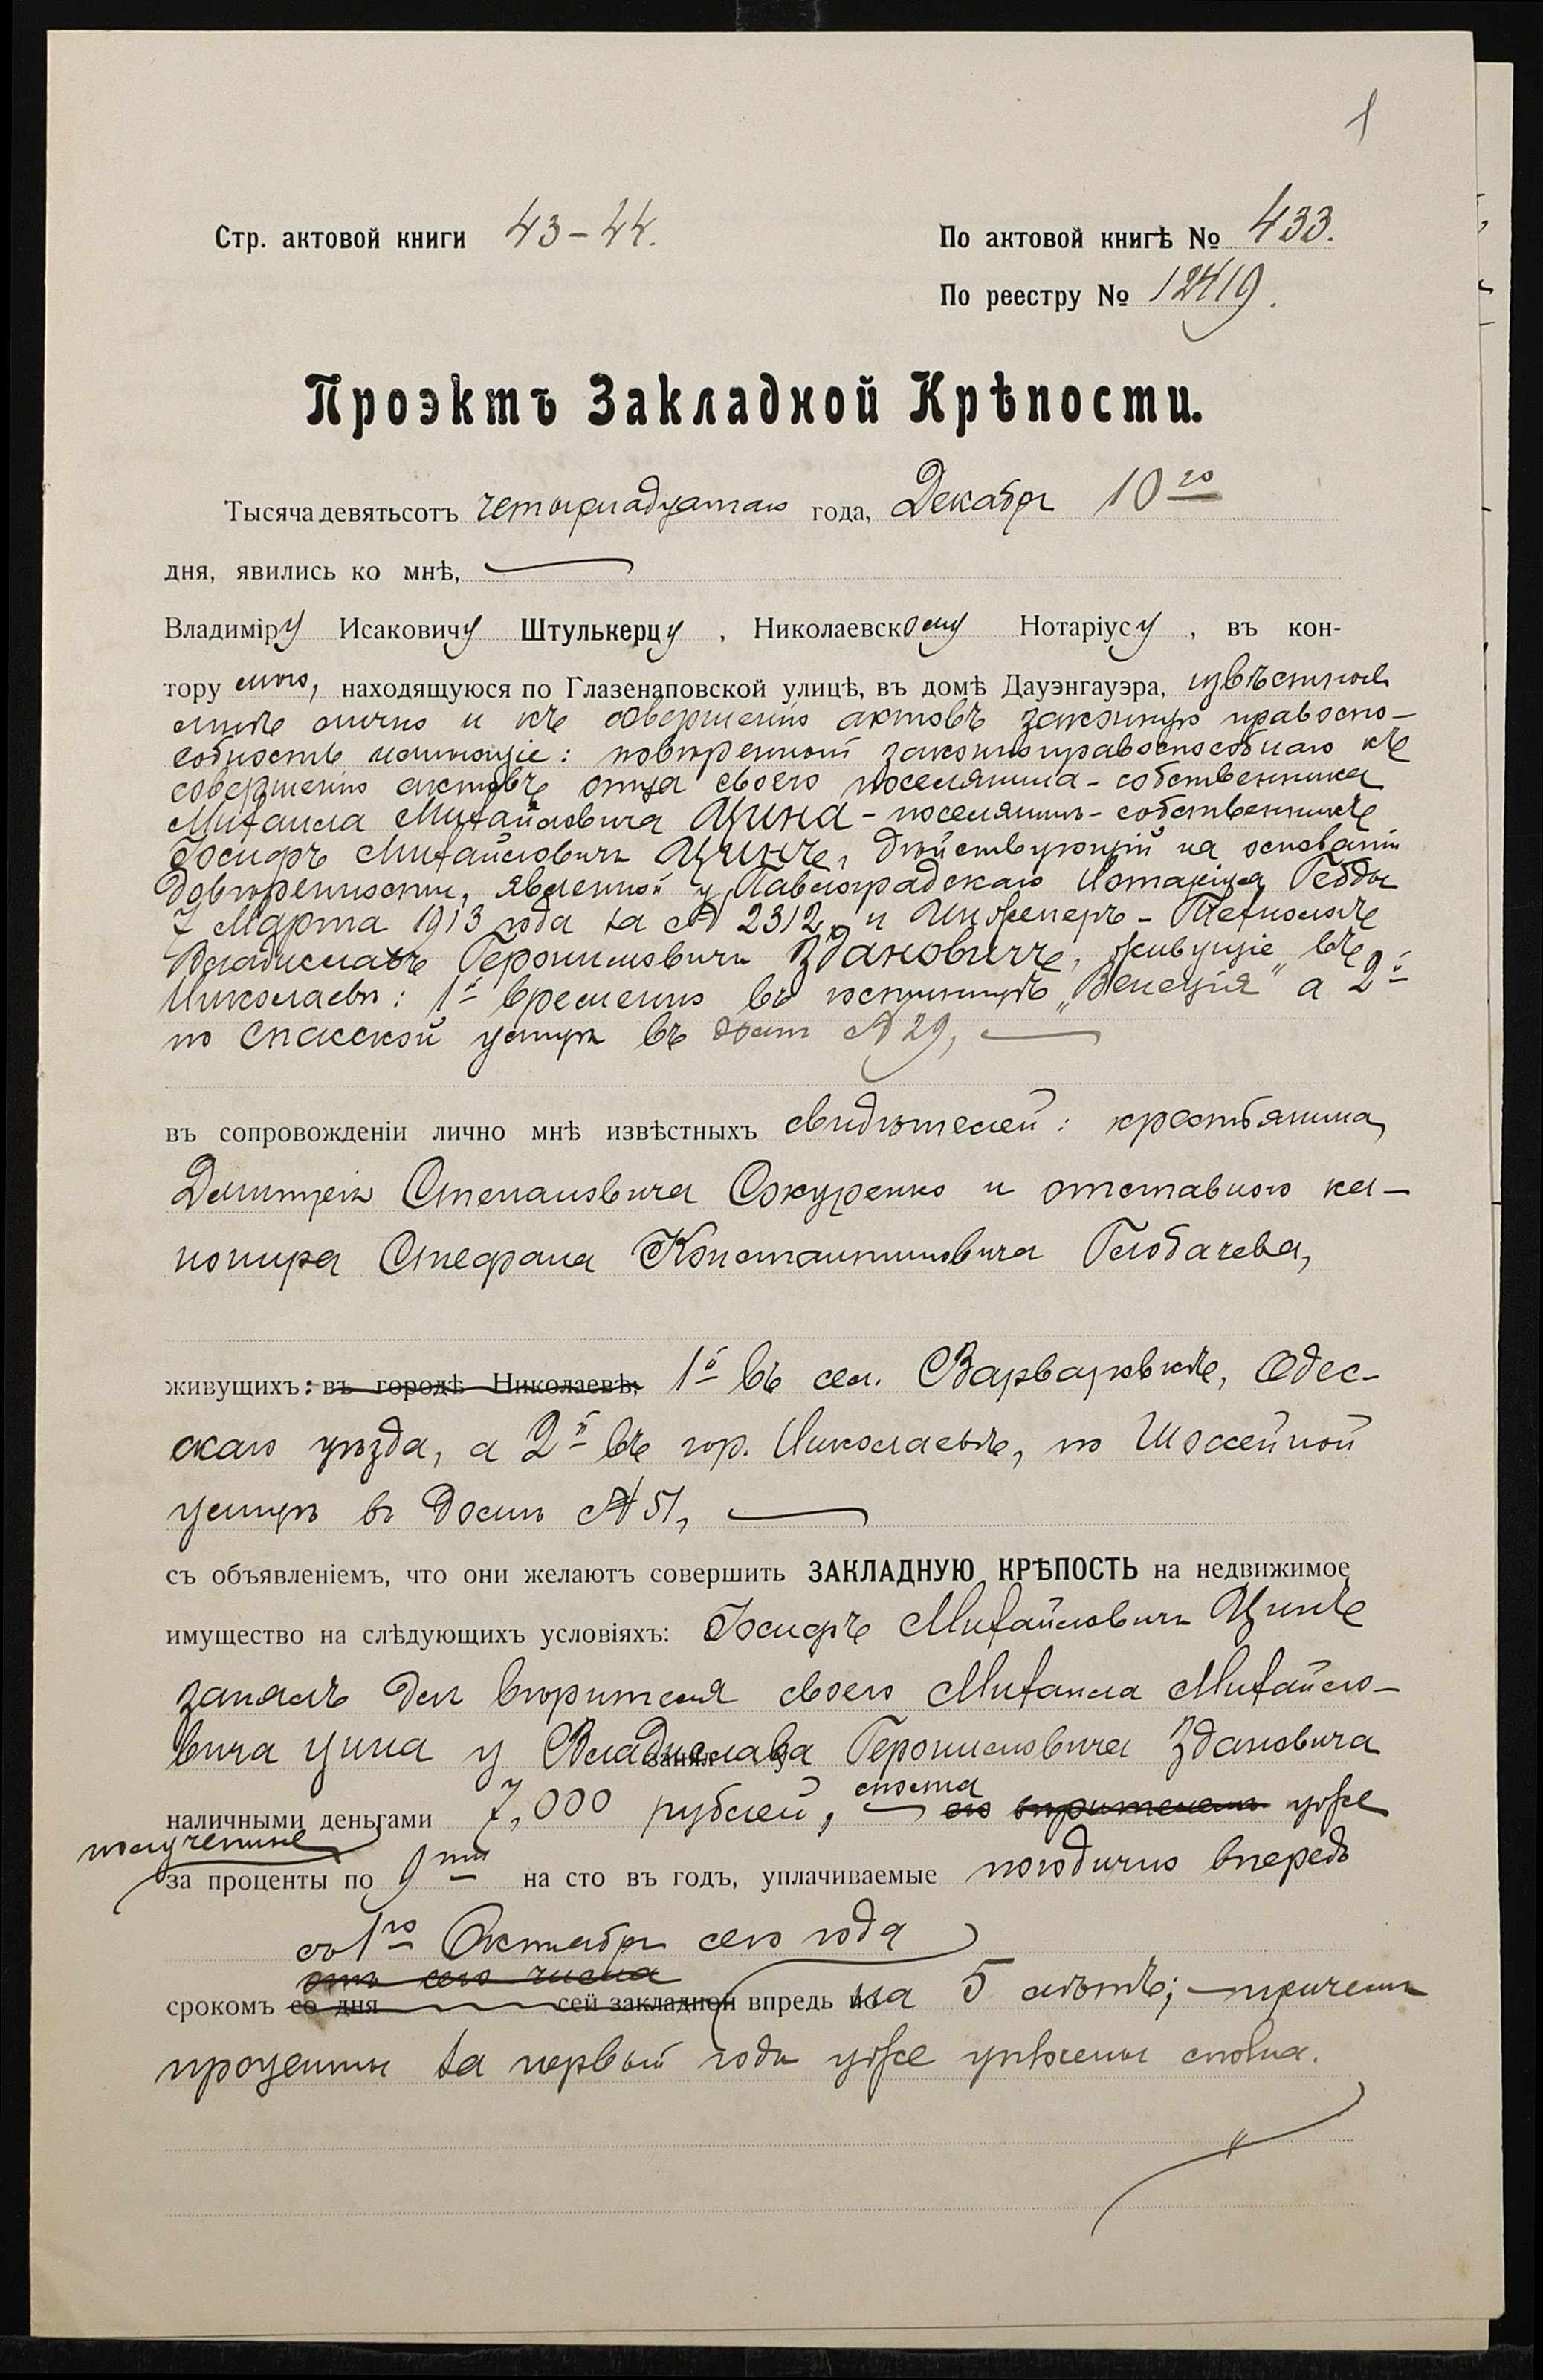 1
Стр. актовой книги 43–44.
По актовой книгѣ № 433.
По реестру № 12419.
Проэктъ Закладной Крѣпости.
Тысяча девятьсотъ четырнадцатаго года, Декабря 10го
дня, явились ко мнѣ,
Владиміру Исаковичу Штулькерцу, Николаевскому Нотаріусу, въ кон-
тору мою, находящуюся по Глазенаповской улицѣ, въ домѣ Дауэнгауэра, извѣстные
мнѣ лично и къ совершенію актовъ законную правоспо-
собность имѣющіе: повѣренный законноправоспособнаго къ
совершенію актовъ отца своего поселянина-собственника
Михаила Михайловича Цина - поселянинъ-собственникъ
Іосифъ Михайловичъ Цинъ, дѣйствующій на основаніи
довѣренности, явленной у Павлоградскаго Нотаріуса Гедды
7 Марта 1913 года за № 2312, и Инженеръ-Технологъ
Владиславъ Геронимовичъ Здановичъ, живущіе въ
Николаевѣ: 1й временно въ гостинницѣ „Венеція" а 2й
по Спасской улицѣ въ домѣ № 29,
въ сопровожденіи лично мнѣ извѣстныхъ свидѣтелей: крестьянина
Дмитрія Степановича Сокуренко и отставного ка-
нонира Стефана Константиновича Глобачева,
живущихъ: въ городѣ Николаевѣ, 1й въ сел. Варваровкѣ, Одес-
скаго уѣзда, а 2й въ гор. Николаевѣ, по Шоссейной
улицѣ въ домѣ № 51,
съ объявленіемъ, что они желаютъ совершить ЗАКЛАДНУЮ КРѢПОСТЬ на недвижимое
имущество на слѣдующихъ условіяхъ: Іосифъ Михайловичъ Цинъ
занялъ для вѣрителя своего Михаила Михайло-
вича Цина у Владислава Геронимовича Здановича
занялъ
наличными деньгами 7,000 рублей, его вѣрителемъ уже
полученные
за проценты по 9ти на сто въ годъ, уплачиваемые погодично впередъ
съ 1го Октября сего года
отъ сего числа
срокомъ со дня сей закладной впредь на 5 лѣтъ; - причемъ
проценты за первый годъ уже уплочены сполна.